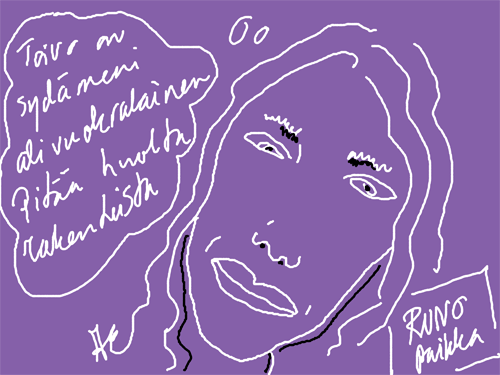 Toivo on
sydämeni
alivuokralainen
Pitää huolta
rakenteista
RUNO
paikka